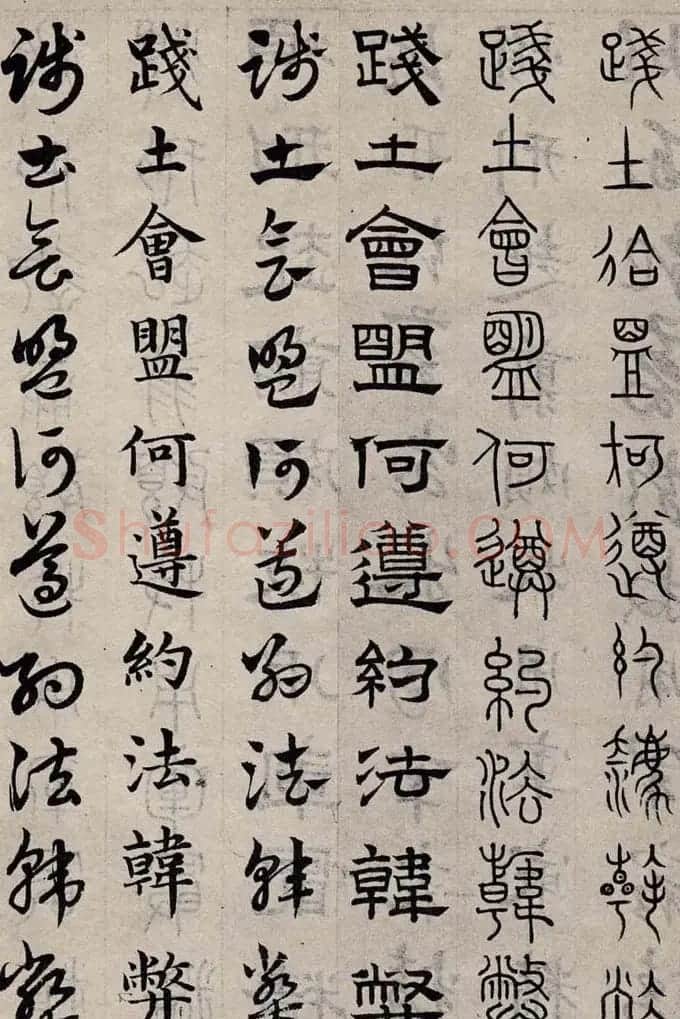 踐土會盟何遵約法韓弊
踐土會盟何遵約法韓弊
踐土會盟何遵約法韓弊
踐土會盟何遵約法韓弊
踐土會盟何遵約法韓弊
踐土會盟何遵約法韓弊
shufaziliao.COM